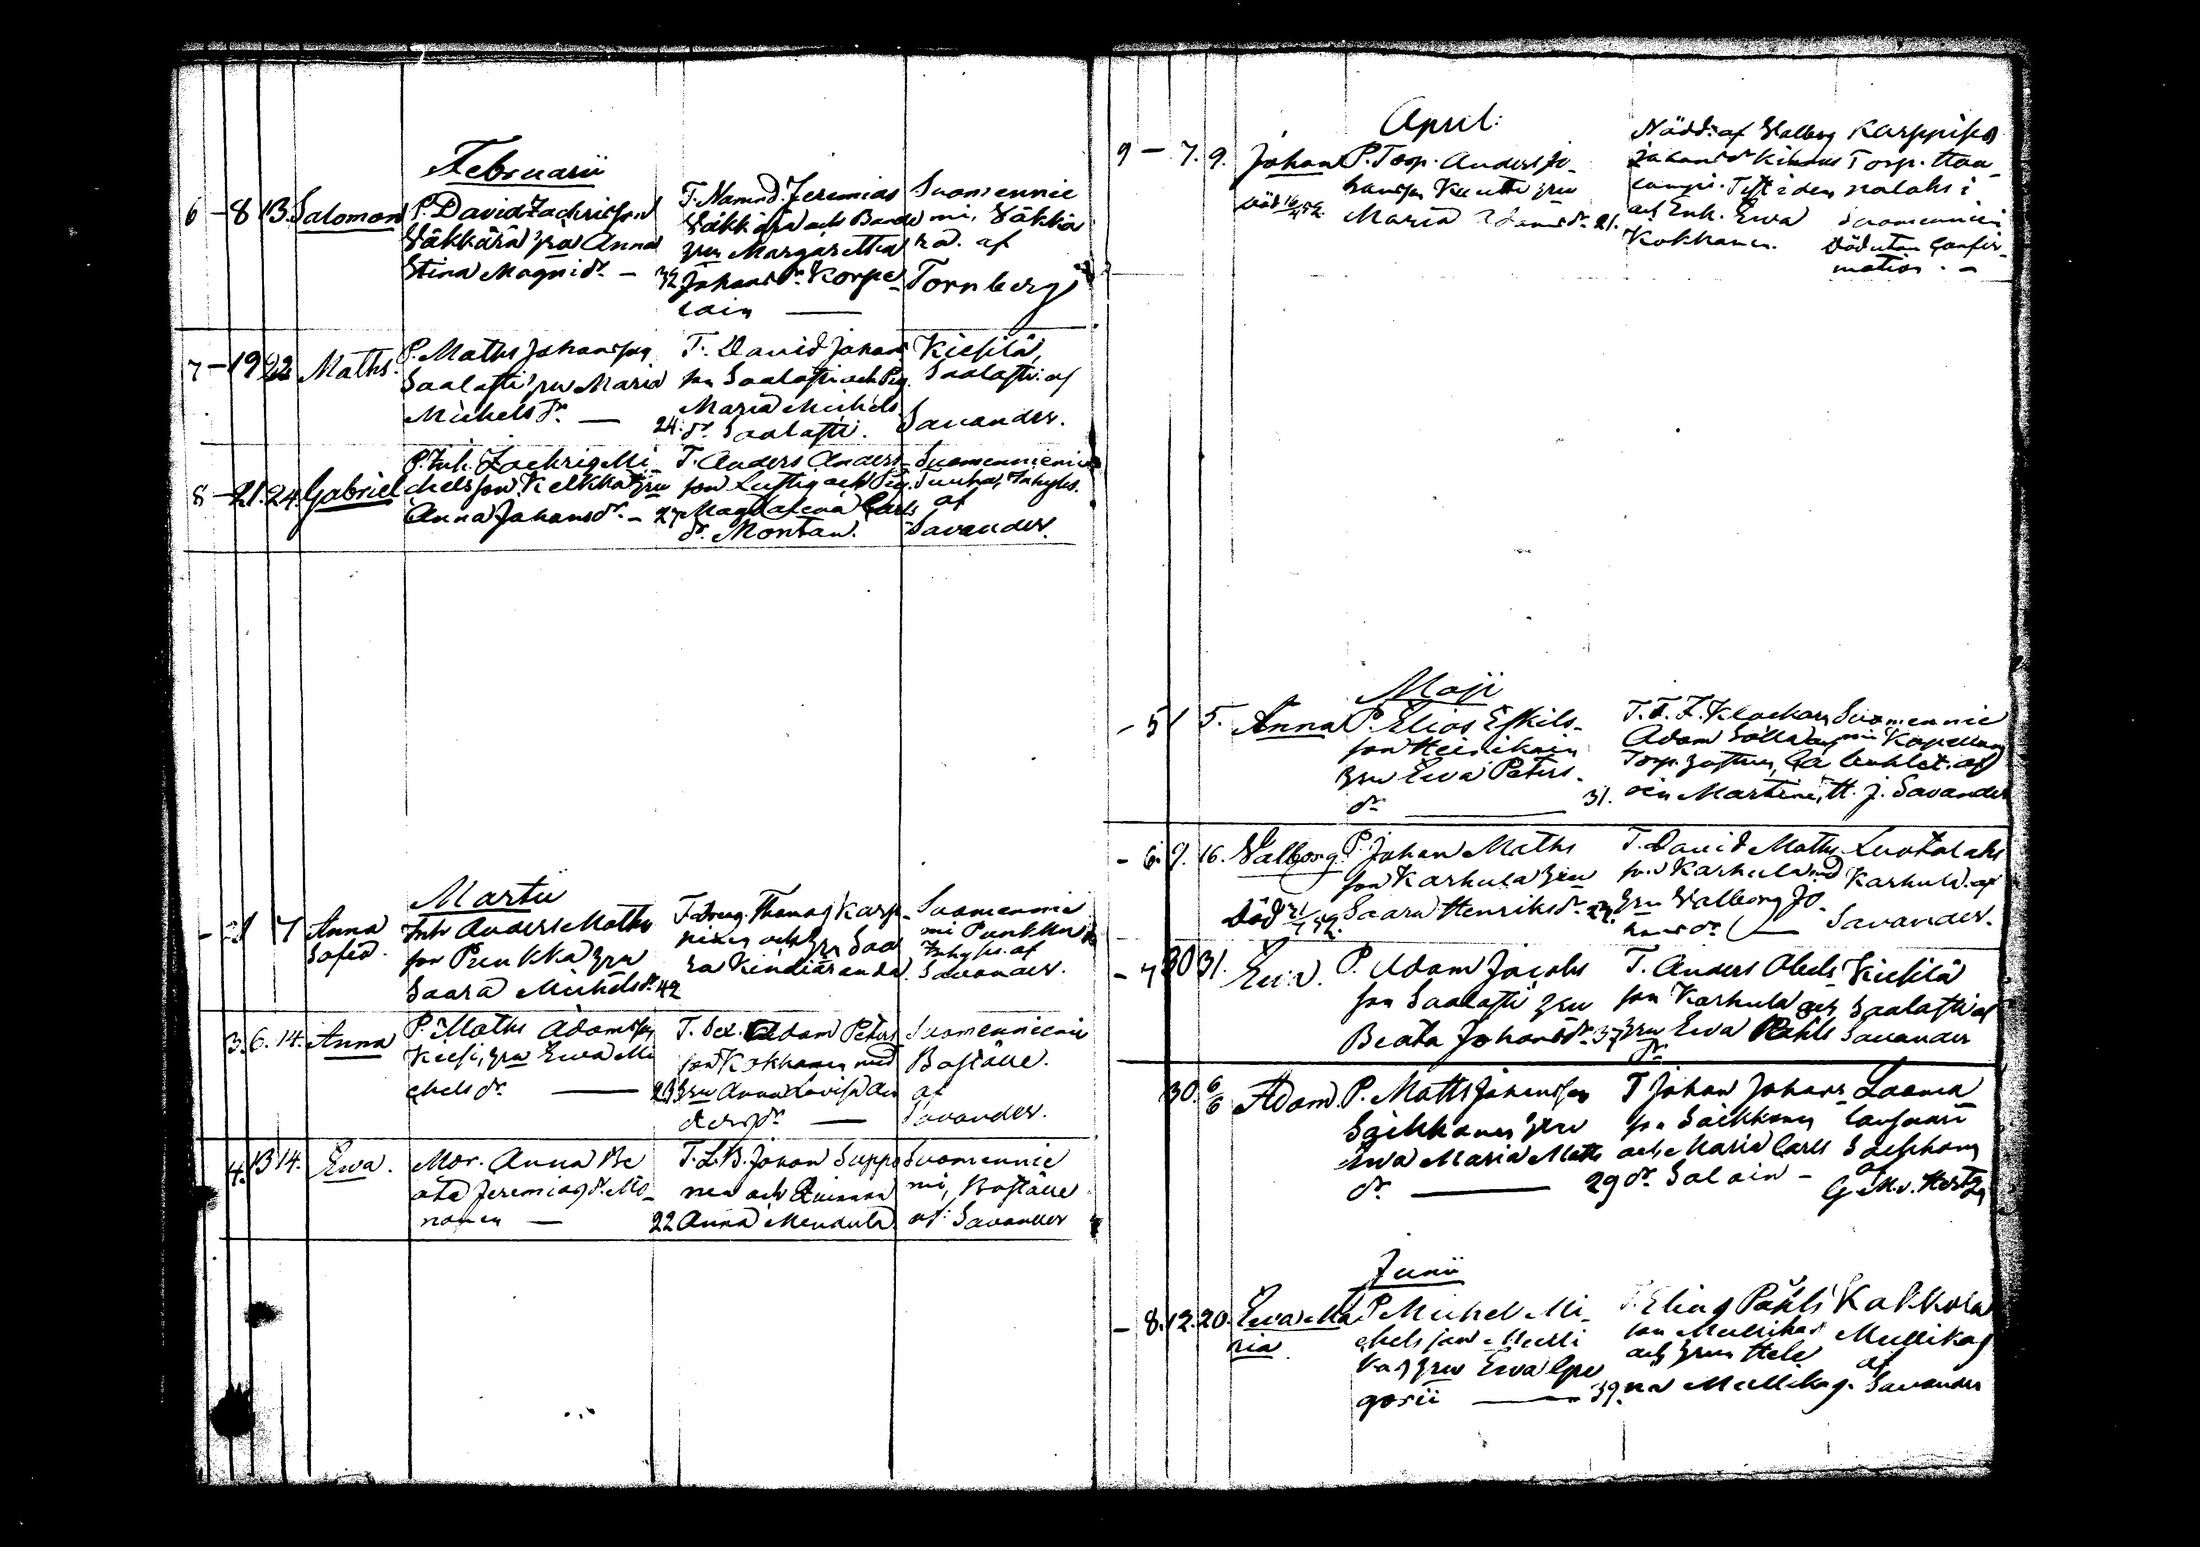 Februarii
6 - 8 13. Salomon P. David Zachrisson
Wäkkärä hru Anna
Stina Magni dr. - 32
T. Nämnd. Jeremias
Wäkkärä och Bonde
hru Margaretha
Johans dr. Korpe-
lain
Suomennie
mi, Wäkkä
rä. af
Tornberg
7 - 19 22 Maths. P. Maths Johansson
Saalasti hru Maria
Michels dr. - 24.
T. David Johans
son Saalasti och Pig.
Maria Michels
dr. Saalasti.
Kiesilä,
Saalasti: af
Savander.
8 - 21. 24. Gabriel P. Inh. Zachris Mi-
chelsson Kelkka hru
Anna Johans dr. - 27
T. Anders Anders-
son Lustig och Pig.
Magdalena Carls
dr. Montan.
Suomenniemi
Inhyses.
af
Savander.
Martii
1 7 Anna
Sofia.
Inh. Anders Maths
son Punkka hru
Saara Michels dr. 42
T. Dreng. Thomas Karp-
pinen och hru Saa
ra Kindiäranda.
Suomennie
mi Punkka
Inhyses. af
Savander.
3. 6. 14. Anna P. Maths Adamsson
Kiesi, hru Ewa Mi
chels dr. 23
T. Adam Peters
son Kokkonen med
hru Anna Lovisa An
ders dr.
Suomenniemi
Boställe.
af
Savander.
4. 13 14. Ewa. Mor. Anna Be
ata Jeremias dr. Mo-
nonen - 22
T. L.B. Johan Suppo
nen och Qvinnan
Anna Mendula.
Suomennie
mi, Boställe
af: Savander
April:
9 - 7. 9. Johan P. Torp. Anders Jo-
hansson hru
Maria dr. 21.
Nödd: af Walborg
Johans dr Kinnus
och Enk. Ewa
Kokkonen.
Karppis
Torp. Haa-
nalaks i
Suomenniemi
Död utan Confir-
mation. -
Maji
- 5 1 5. Anna P. Elias Eskils-
son Heinikain
hru Ewa Peters-
dr. 31.
T. Klockarn
Adam och
Torp.
Martini,
Suomennie
mi Kapellans
af
H. J. Savander
- 6. 9. 16. Walborg. P. Johan Maths
son Karhula hru
Saara Henriks dr. 27.
Död
T. David Maths
son Karhula med
hru Walborg Jo-
hans dr.
Luotolaks
Karhula. af
Savander.
- 7 30 31. Ewa. P. Adam Jacobs
son Saalasti hru
Beata Johans dr. 37
T. Anders Abels
son Karhula och
hru Ewa Påhls
dr.
Kiesilä
Saalasti af
Savander
30. 6/6 Adam. P. Matts Johansson
Säikkonen hru
Ewa Maria Matts
dr. 29
T Johan Johans-
son Säikkonen
och Maria Carls
dr. Saloin -
Laama
lansuari
af
G. M. v. Hertzen
Junii
- 8. 12. 20. Ewa Ma
ria
P. Michel Mi-
chelsson Mulli
kas hru Ewa Gre
gorii 39.
T. Elias Påhls
son Mullikas
och hru Hele
na Mullikas.
Kolkkola
Mullikas
af
Savander